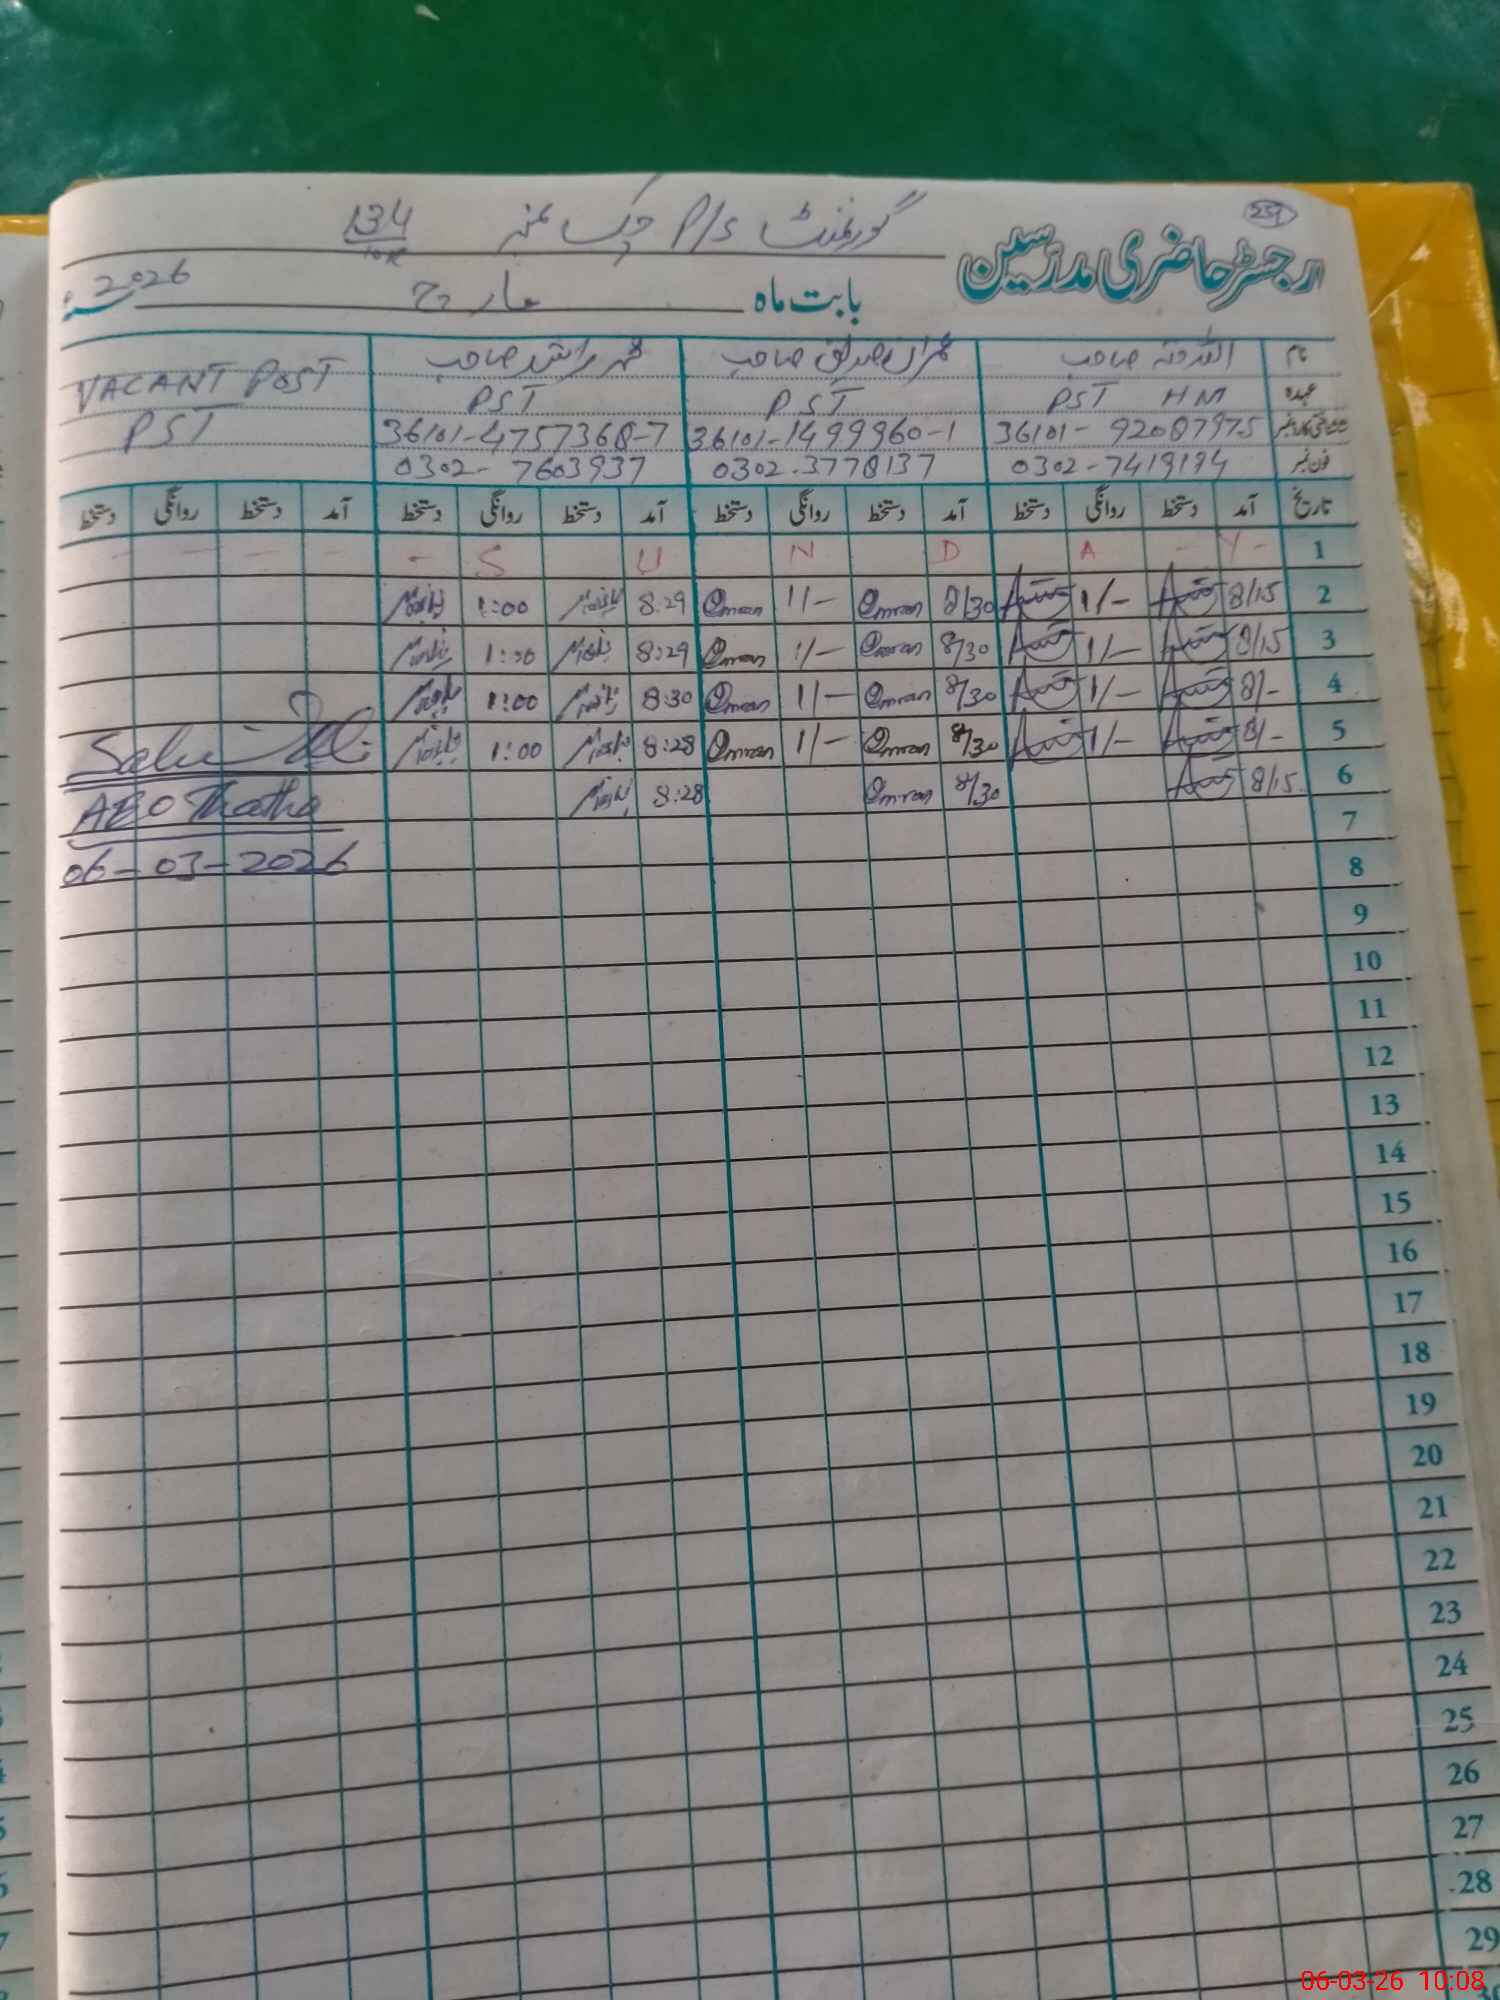 239
رجسٹر حاضری مدرسین
گورنمنٹ P/S چک نمبر 134/10R
بابت ماہ مارچ 2026
نام اللہ دتہ صاحب عمران صدیق صاحب محمد راشد صاحب VACANT POST
عہدہ PST HM PST PST PST
شناختی کارڈ نمبر 36101-92087975 36101-1499960-1 36101-4757368-7
فون نمبر 0302-7419194 0302-3778137 0302-7603937
تاریخ آمد دستخط روانگی دستخط آمد دستخط روانگی دستخط آمد دستخط روانگی دستخط آمد دستخط روانگی دستخط
1 - Y - A D N U S - - - - -
2 8/15 1/- 8/30 Omran 1/- Omran 8:29 1:00
3 8/15 1/- 8/30 Omran 1/- Omran 8:29 1:00
4 8/- 1/- 8/30 Omran 1/- Omran 8:30 1:00
5 8/- 1/- 8/30 Omran 1/- Omran 8:28 1:00
6 8/15 8/30 Omran 8:28
AEO Thatha
06-03-2026
7
8
9
10
11
12
13
14
15
16
17
18
19
20
21
22
23
24
25
26
27
28
29
30
06-03-26 10:08